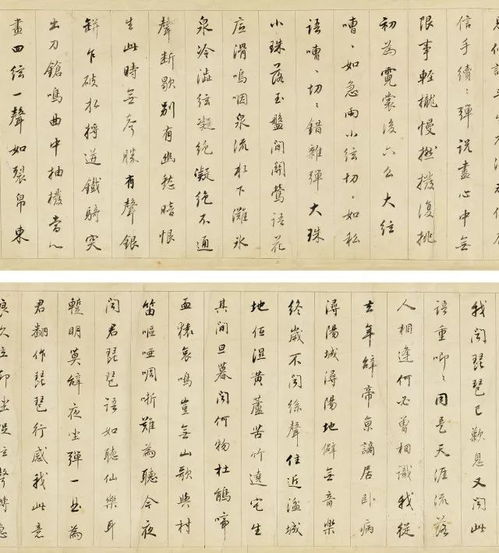 信手續〻彈說盡心中無
限事輕攏慢撚撥復挑
初為霓裳後六么大絃
嘈〻如急雨小絃切〻如私
語嘈〻切〻錯雜彈大珠
小珠落玉盤間關鶯語花
底滑嗚咽泉流水下灘氷
泉冷澁絃凝絕凝絕不通
聲斷歇別有幽愁暗恨
生此時無聲勝有聲銀
缾乍破水將迸鐵騎突
出刀鎗鳴曲中抽撥當心
畫四絃一聲如裂帛東
我聞琵琶已歎息又聞此
語重唧〻同是天涯流落
人相逢何必曾相識我從
去年辭帝京謫居卧病
潯陽城潯陽地僻無音樂
終歲不聞絲聲住近湓城
地低濕黃蘆苦竹遶宅生
其間旦暮聞何物杜鵑啼
血猿哀鳴豈無山歌與村
笛嘔啞啁哳難為聽今夜
聞君琵琶語如聽仙樂耳
暫明莫辭夜坐彈一曲為
君翻作琵琶行感我此言